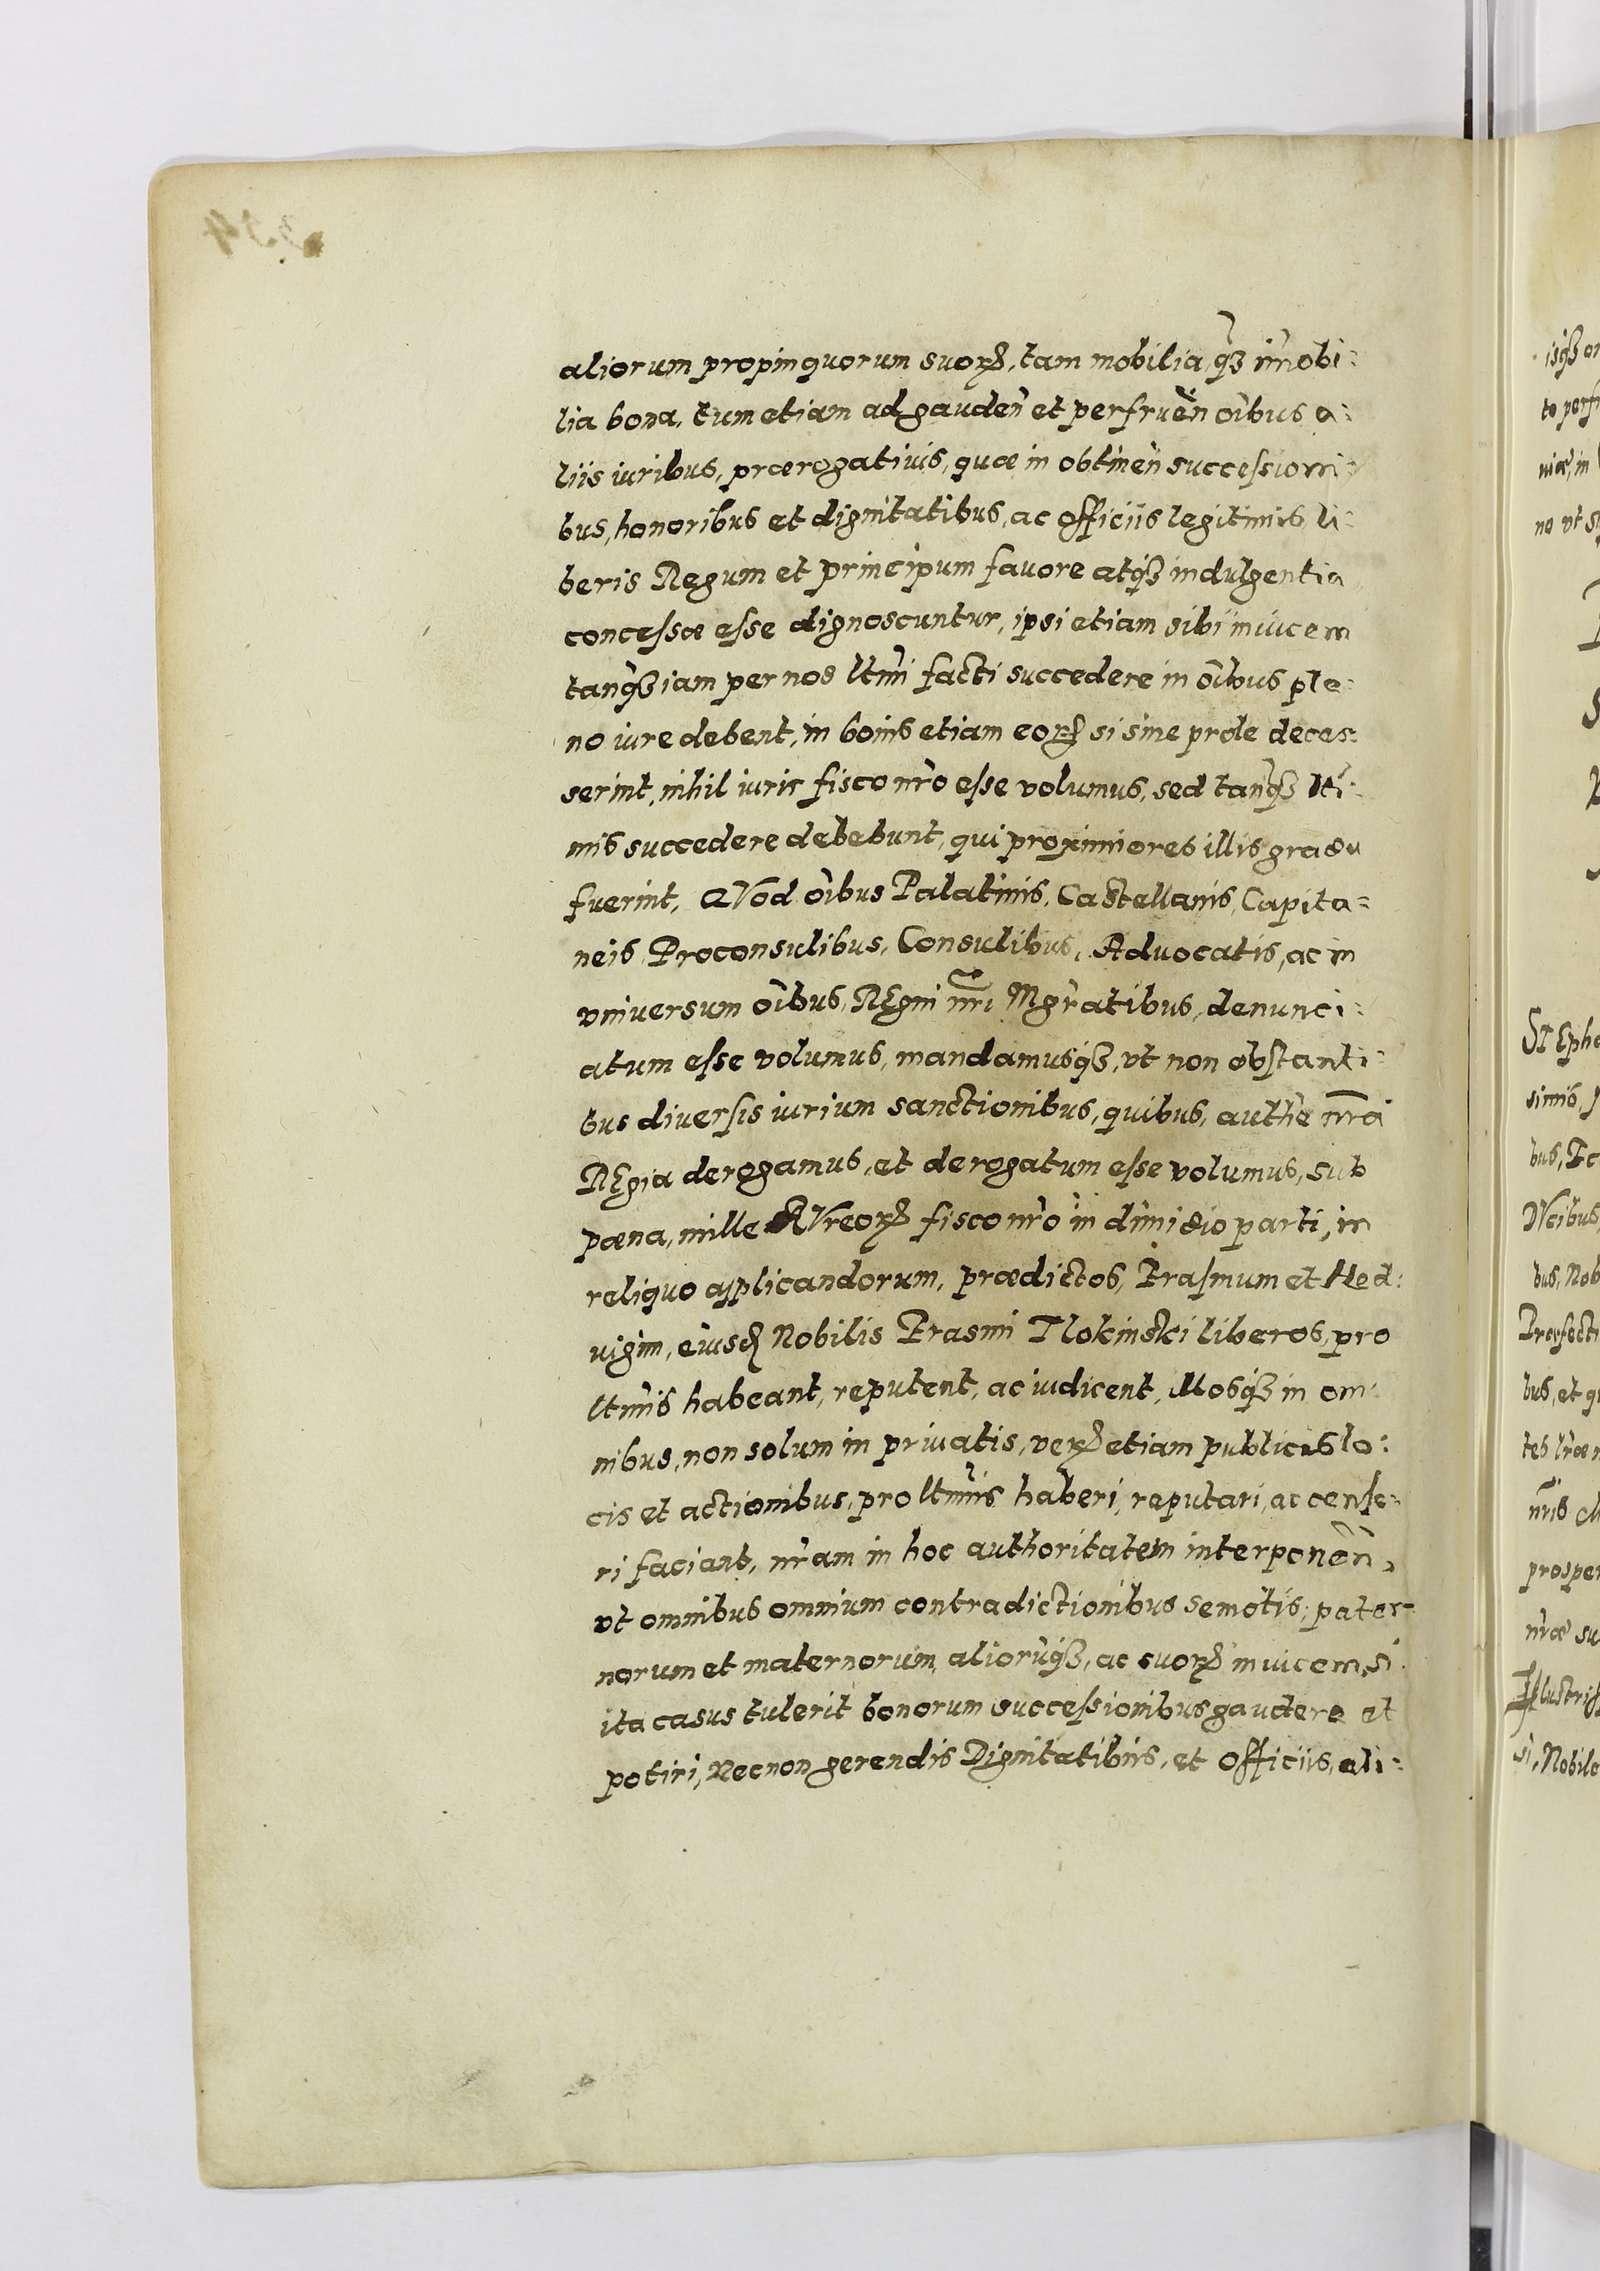 aliorum propinquorum suoꝝ, tam mobilia, qꝫ im̃obi:
lia bona, tum etiam ad gauden̄ et perfruen̄ oībus a:
liis iuribus, prærogatiuis, quæ in obtinen̄ succeſsioni:
bus, honoribus et dignitatibus, ac officiis legitimis li:
beris Regum et principum fauore atqꝫ indulgentia
conceſsæ eſse dignoscuntur, ipsi etiam sibi inuicem
tanqꝫ iam per nos ltīmi facti succedere in oībus ple:
no iure debent, in bonis etiam eoꝝ si sine prole deces:
serint, nihil iuris fisco nr̄o eſse volumus, sed tanqꝫ ltī:
mis succedere debebunt, qui proximiores illis gradu
fuerint, QVod oībus Palatinis, Castellanis, Capita:
neis Proconsulibus, Consulibus, Aduocatis, ac in
vniuersum oībus REgni nr̄i Mgrātibus, denunci:
atum eſse volumus, mandamusqꝫ, vt non obſtanti:
bus diuerſis iurium sanctionibus, quibus, authē nr̄a
REgia derogamus, et derogatum eſse volumus, sub
pæna, mille AVreoꝝ fisco nr̄o in dimidio parti, in
reliquo applicandorum, prædictos, Eraſmum et Hed:
uigim, eiusd Nobilis Erasmi Tlokinski liberos, pro
ltīmis habeant, reputent, ac iudicent, Illosqꝫ in om:
nibus, non solum in priuatis, veꝝ etiam publicis lo:
cis et actionibus, pro ltīmis haberi, reputari, ac cenſe:
ri faciant, nr̄am in hoc authoritatem interponen̄,
vt omnibus omnium contradictionibus semotis, pater:
norum et maternorum, aliorūqꝫ, ac suoꝝ inuicem, si
ita casus tulerit bonorum succeſsionibus gaudere et
potiri, Necnon gerendis Dignitatibus, et officiis, ali:
isqꝫ
to perf
niæ, in
no vt
STEpha
simis,
bus,
DVcibus,
bus, Nob
Præfecti
bus, et q
tes lr̄æ
nr̄is
prosper
nr̄æ su
Illustriſ
si, Nobile